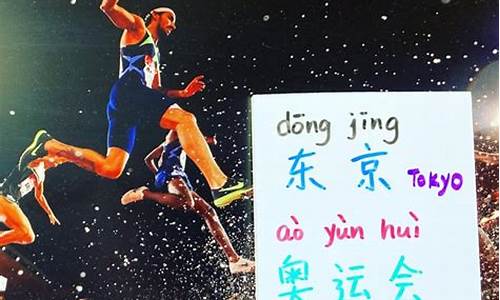 dōng jīng
东京 Tokyo
ào yùn huì
奥运会